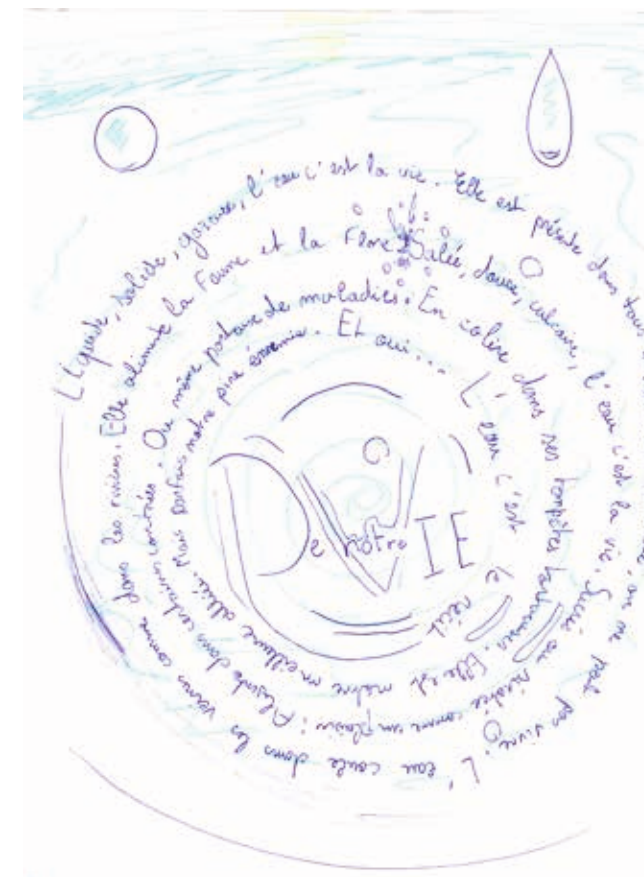 Liquide, solide, gazeuse, l'eau c'est la vie. Elle est présente dans on ne peut pas vivre. L'eau coule dans les veines comme
dans les rivières. Elle alimente la Faune et la Flore. Salée, douce, calcaire, l'eau c'est la vie. Sucrée ou comme un plaisir; Absente
dans certaines contrées. Ou même porteuse de maladies. En colère dans ses tempêtes Elle est notre meilleure alliée.
Mais parfois notre pire ennemie. Et oui... L'eau c'est le récit
De notre VIE